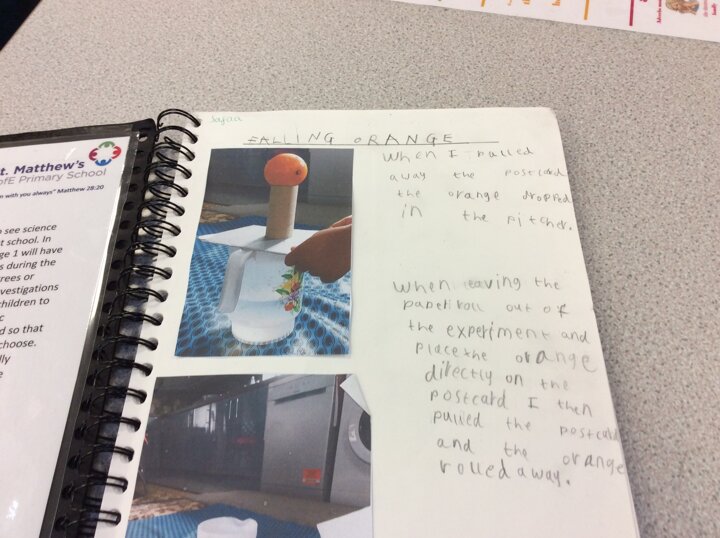 t. Matthew's
ofE Primary School
m with you always" Matthew 28:20
o see science
t school. In
ge 1 will have
s during the
rees or
vestigations
children to
c
d so that
choose.
lly
e
Safaa
FALLING ORANGE
When I pulled
away the postcard
the orange dropped
in the pitcher.
When leaving the
paper roll out of
the experiment and
place the orange
directly on the
postcard I then
pulled the postcard
and the orange
rolled away.